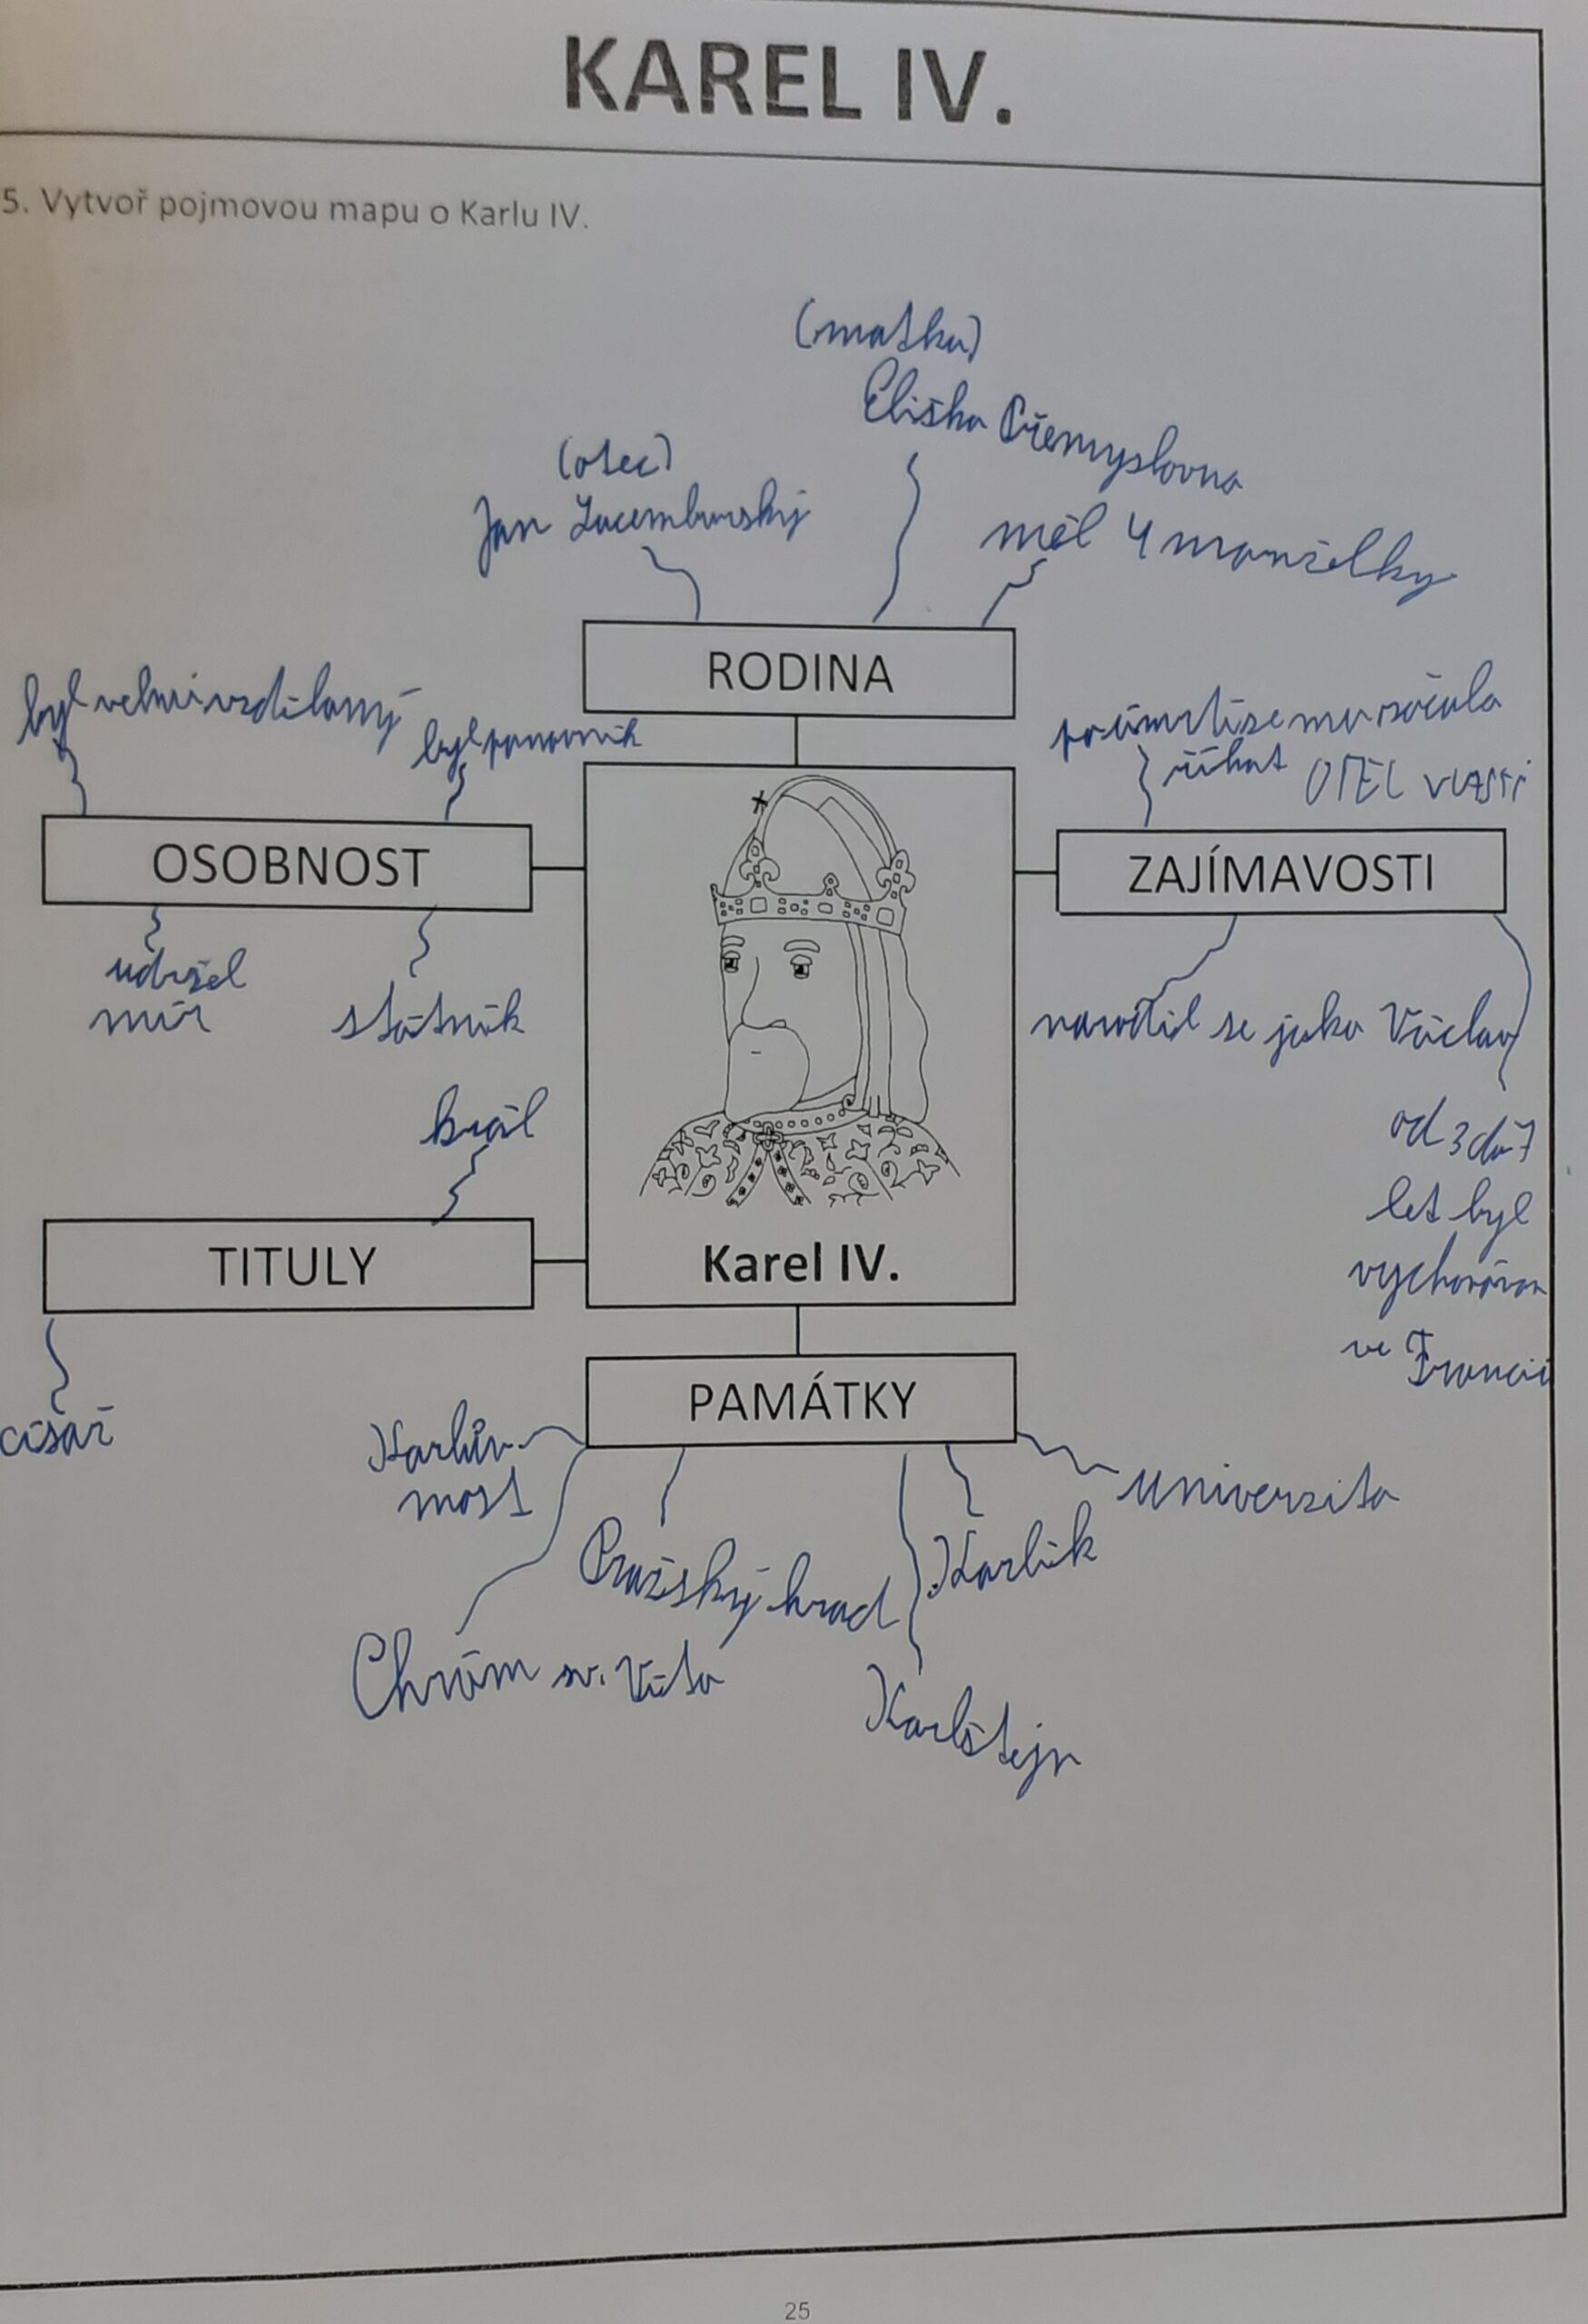 KAREL IV.
5. Vytvoř pojmovou mapu o Karlu IV.
(matka)
Eliška Přemyslovna
(otec)
Jan Lucemburský
měl 4 manželky
RODINA
byl velmi vzdělaný
byl panovník
OSOBNOST
udržel
mír
státník
po úmrtí se mu začalo
říkat OTEC VLASTI
ZAJÍMAVOSTI
narodil se jako Václav
od 3 do 7
let byl
vychováván
ve Francii
král
TITULY
císař
Karel IV.
PAMÁTKY
Karlův
most
Univerzita
Pražský hrad
Karlík
Chrám sv. Víta
Karlštejn
25